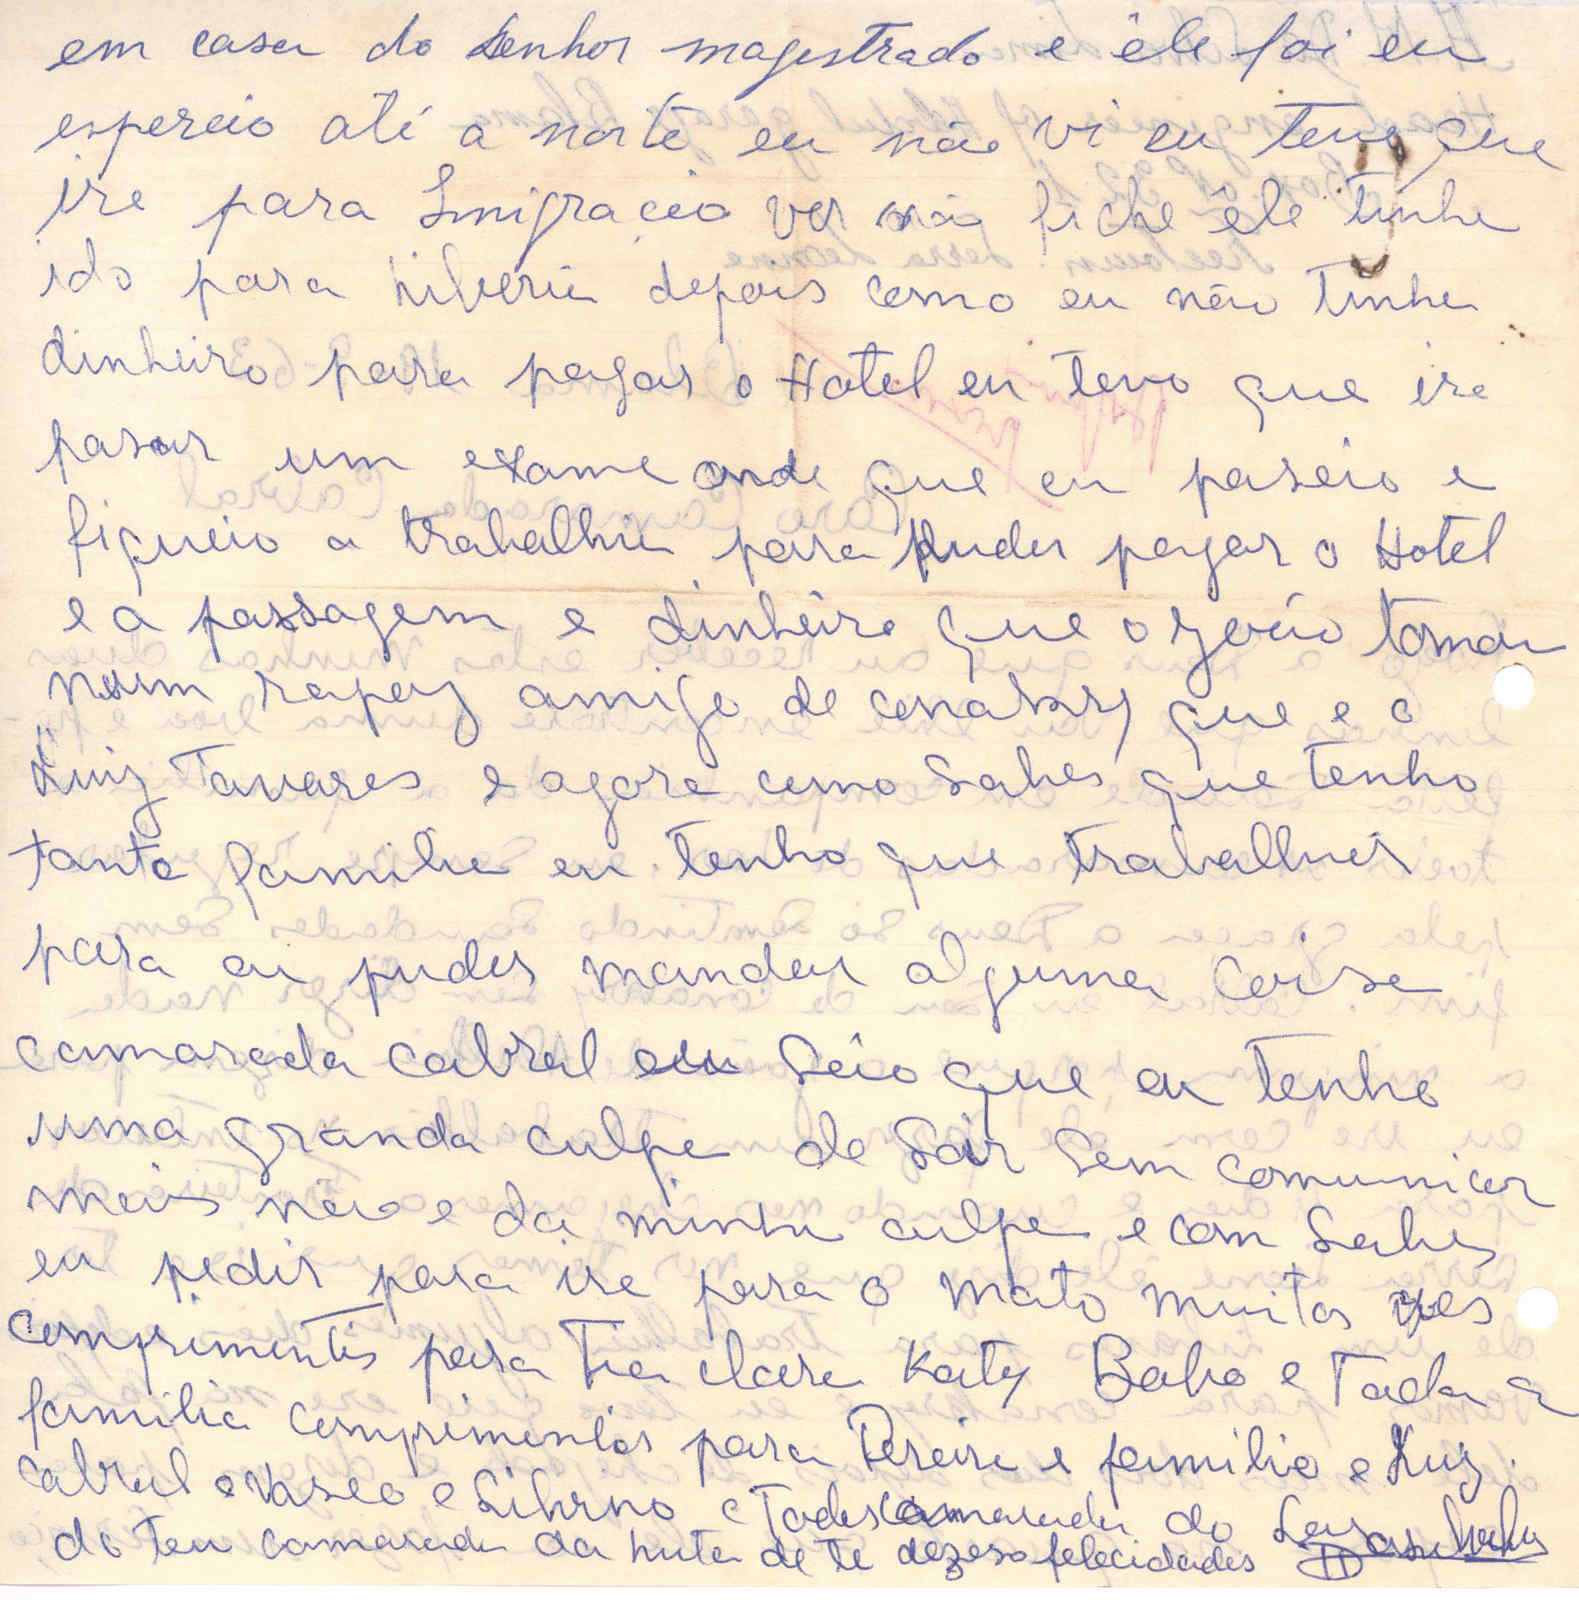 em casa do Senhor magestrado e êle foi eu
espereio até a noite eu não vi eu teve que
ire para Imigração ver na fiche êle tinha
ido para Liberia depois como eu não tinha
dinheiro para pagar o Hotel eu tevo que ire
pasar um exame onde que eu paseio e
fiqueio a trabalhia para puder pagar o Hotel
e a passagem e dinheiro que o João tomou
num rapaz amigo de conakry que e o
Luiz Tavares e agora como sabes que tenho
tanta familia eu tenho que trabalhar
para eu puder mandar alguma coisa
camarada cabral eu seio que eu tenho
uma granda culpa de sair sem comunicar
mais não e da minha culpa e com sabes
eu pedir para ire para o mato muitas vez
comprimentos para Tia clara Katy Baho e Toda a
familia comprimentos para Pereira e familia e Luiz
cabral e Vasco e Silvino e Todos camarada do Lar
do teu camarada da luta de te dezeso felecidades